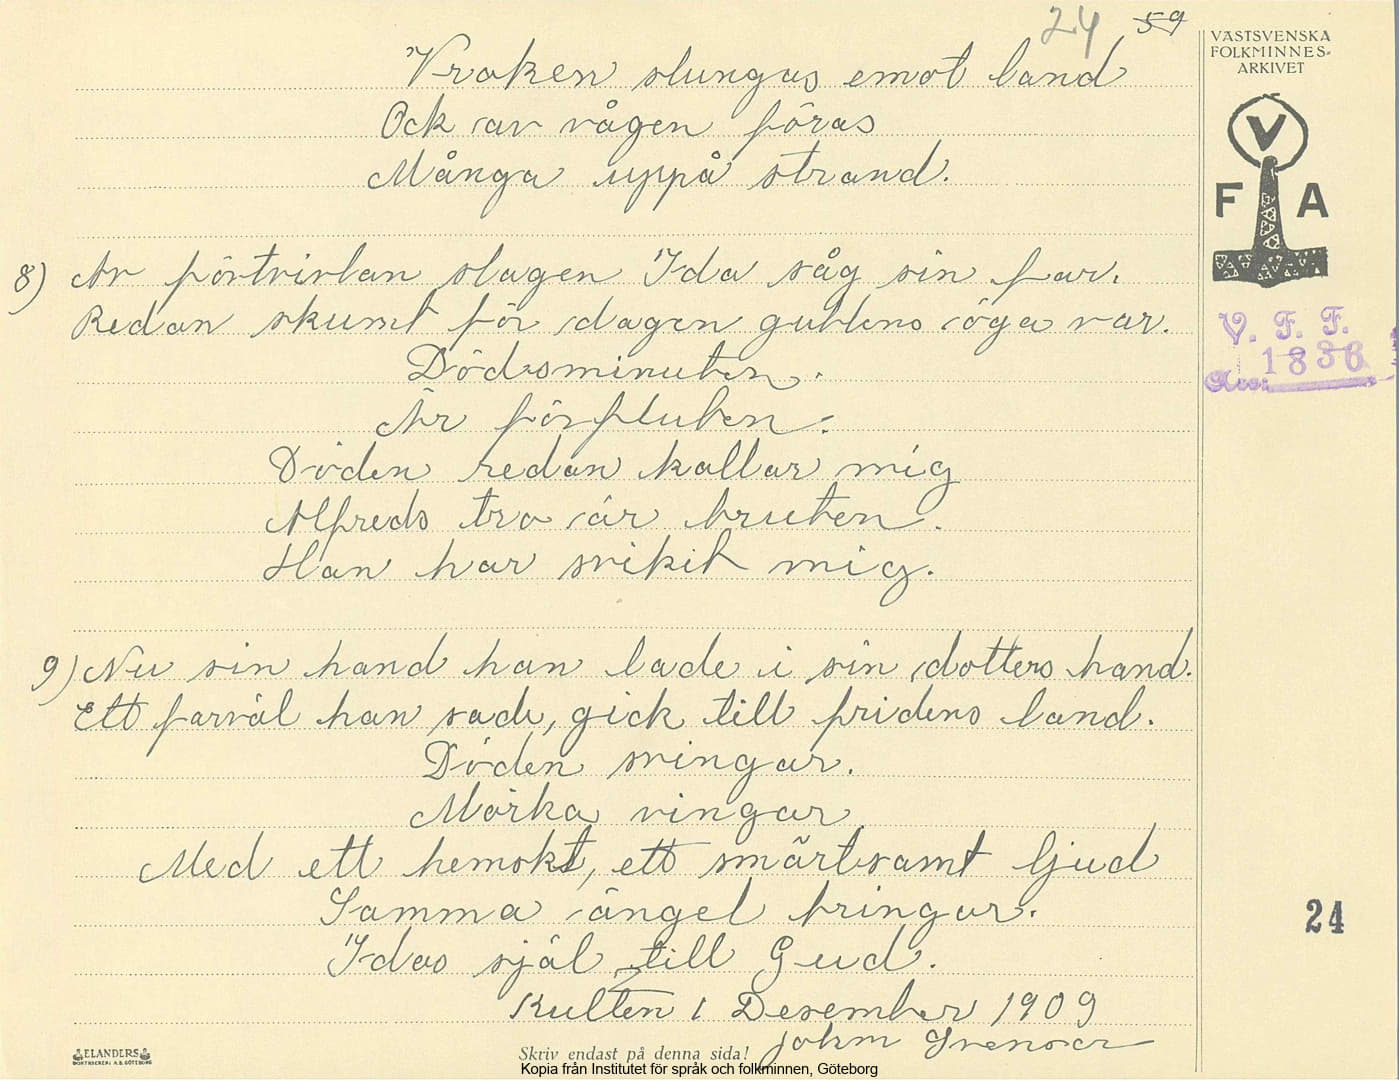 24 59
VÄSTSVENSKA
FOLKMINNES-
ARKIVET
V
F A
V. F. F.
1836
Vraken slungas emot land
Ock av vågen föras
Många uppå strand.
8) Av förtvivlan slagen Ida såg sin far.
Redan skumt för dagen gubbens öga var.
Dödsminuten.
Är förfluten.
Döden redan kallar mig
Alfreds tro är bruten.
Han har svikit mig.
9) Nu sin hand han lade i sin dotters hand.
Ett farväl han sade, gick till fridens land.
Döden svingar.
Mörka vingar
Med ett hemskt, ett smärtsamt ljud
Samma ängel bringar.
Idas själ till Gud.
Kulten 1 Desember 1909
24
ELANDERS
BOKTRYCKERI A.B. GÖTEBORG
Skriv endast på denna sida!
Kopia från Institutet för språk och folkminnen, Göteborg